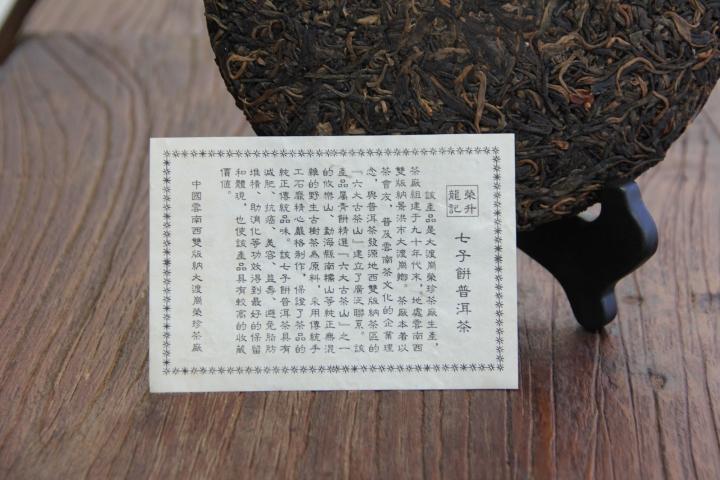 榮升
龍記
七子餅普洱茶
該產品是大渡崗榮珍茶廠生產，
茶廠組建于九十年代末，地處雲南西
雙版納景洪市大渡崗鄉。茶廠本着以
茶會友，普及雲南茶文化的企業理
念，與普洱茶發源地西雙版納茶區的
「六大古茶山」建立了廣泛聯系。該
產品屬青餅精選「六大古茶山」之一
的攸樂山、勐海縣南糯山等純正無混
雜的野生古樹茶為原料，采用傳統手
工石磨精心嚴格制作，保證了茶品的
純正傳統品味。該七子餅普洱茶具有
減肥、抗癌、美容、益壽、避免脂肪
堆積、助消化等功效得到最好的保留
和體現，也使該產品具有較高的收藏
價值。
中國雲南西雙版納大渡崗榮珍茶廠